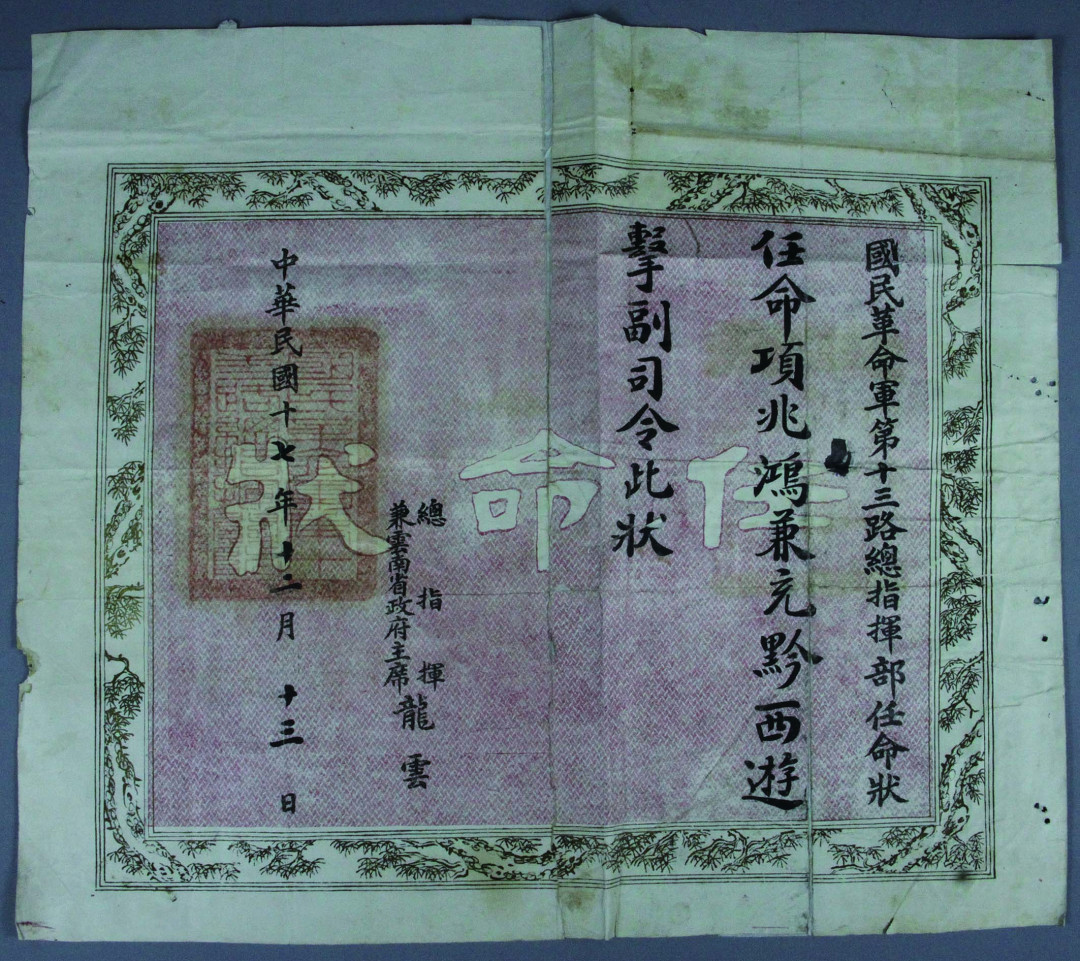 國民革命軍第十三路總指揮部任命狀
任命項兆鴻兼充黔西遊
擊副司令此狀
總指揮
兼雲南省政府主席龍雲
中華民國十七年十二月十三日
任命狀